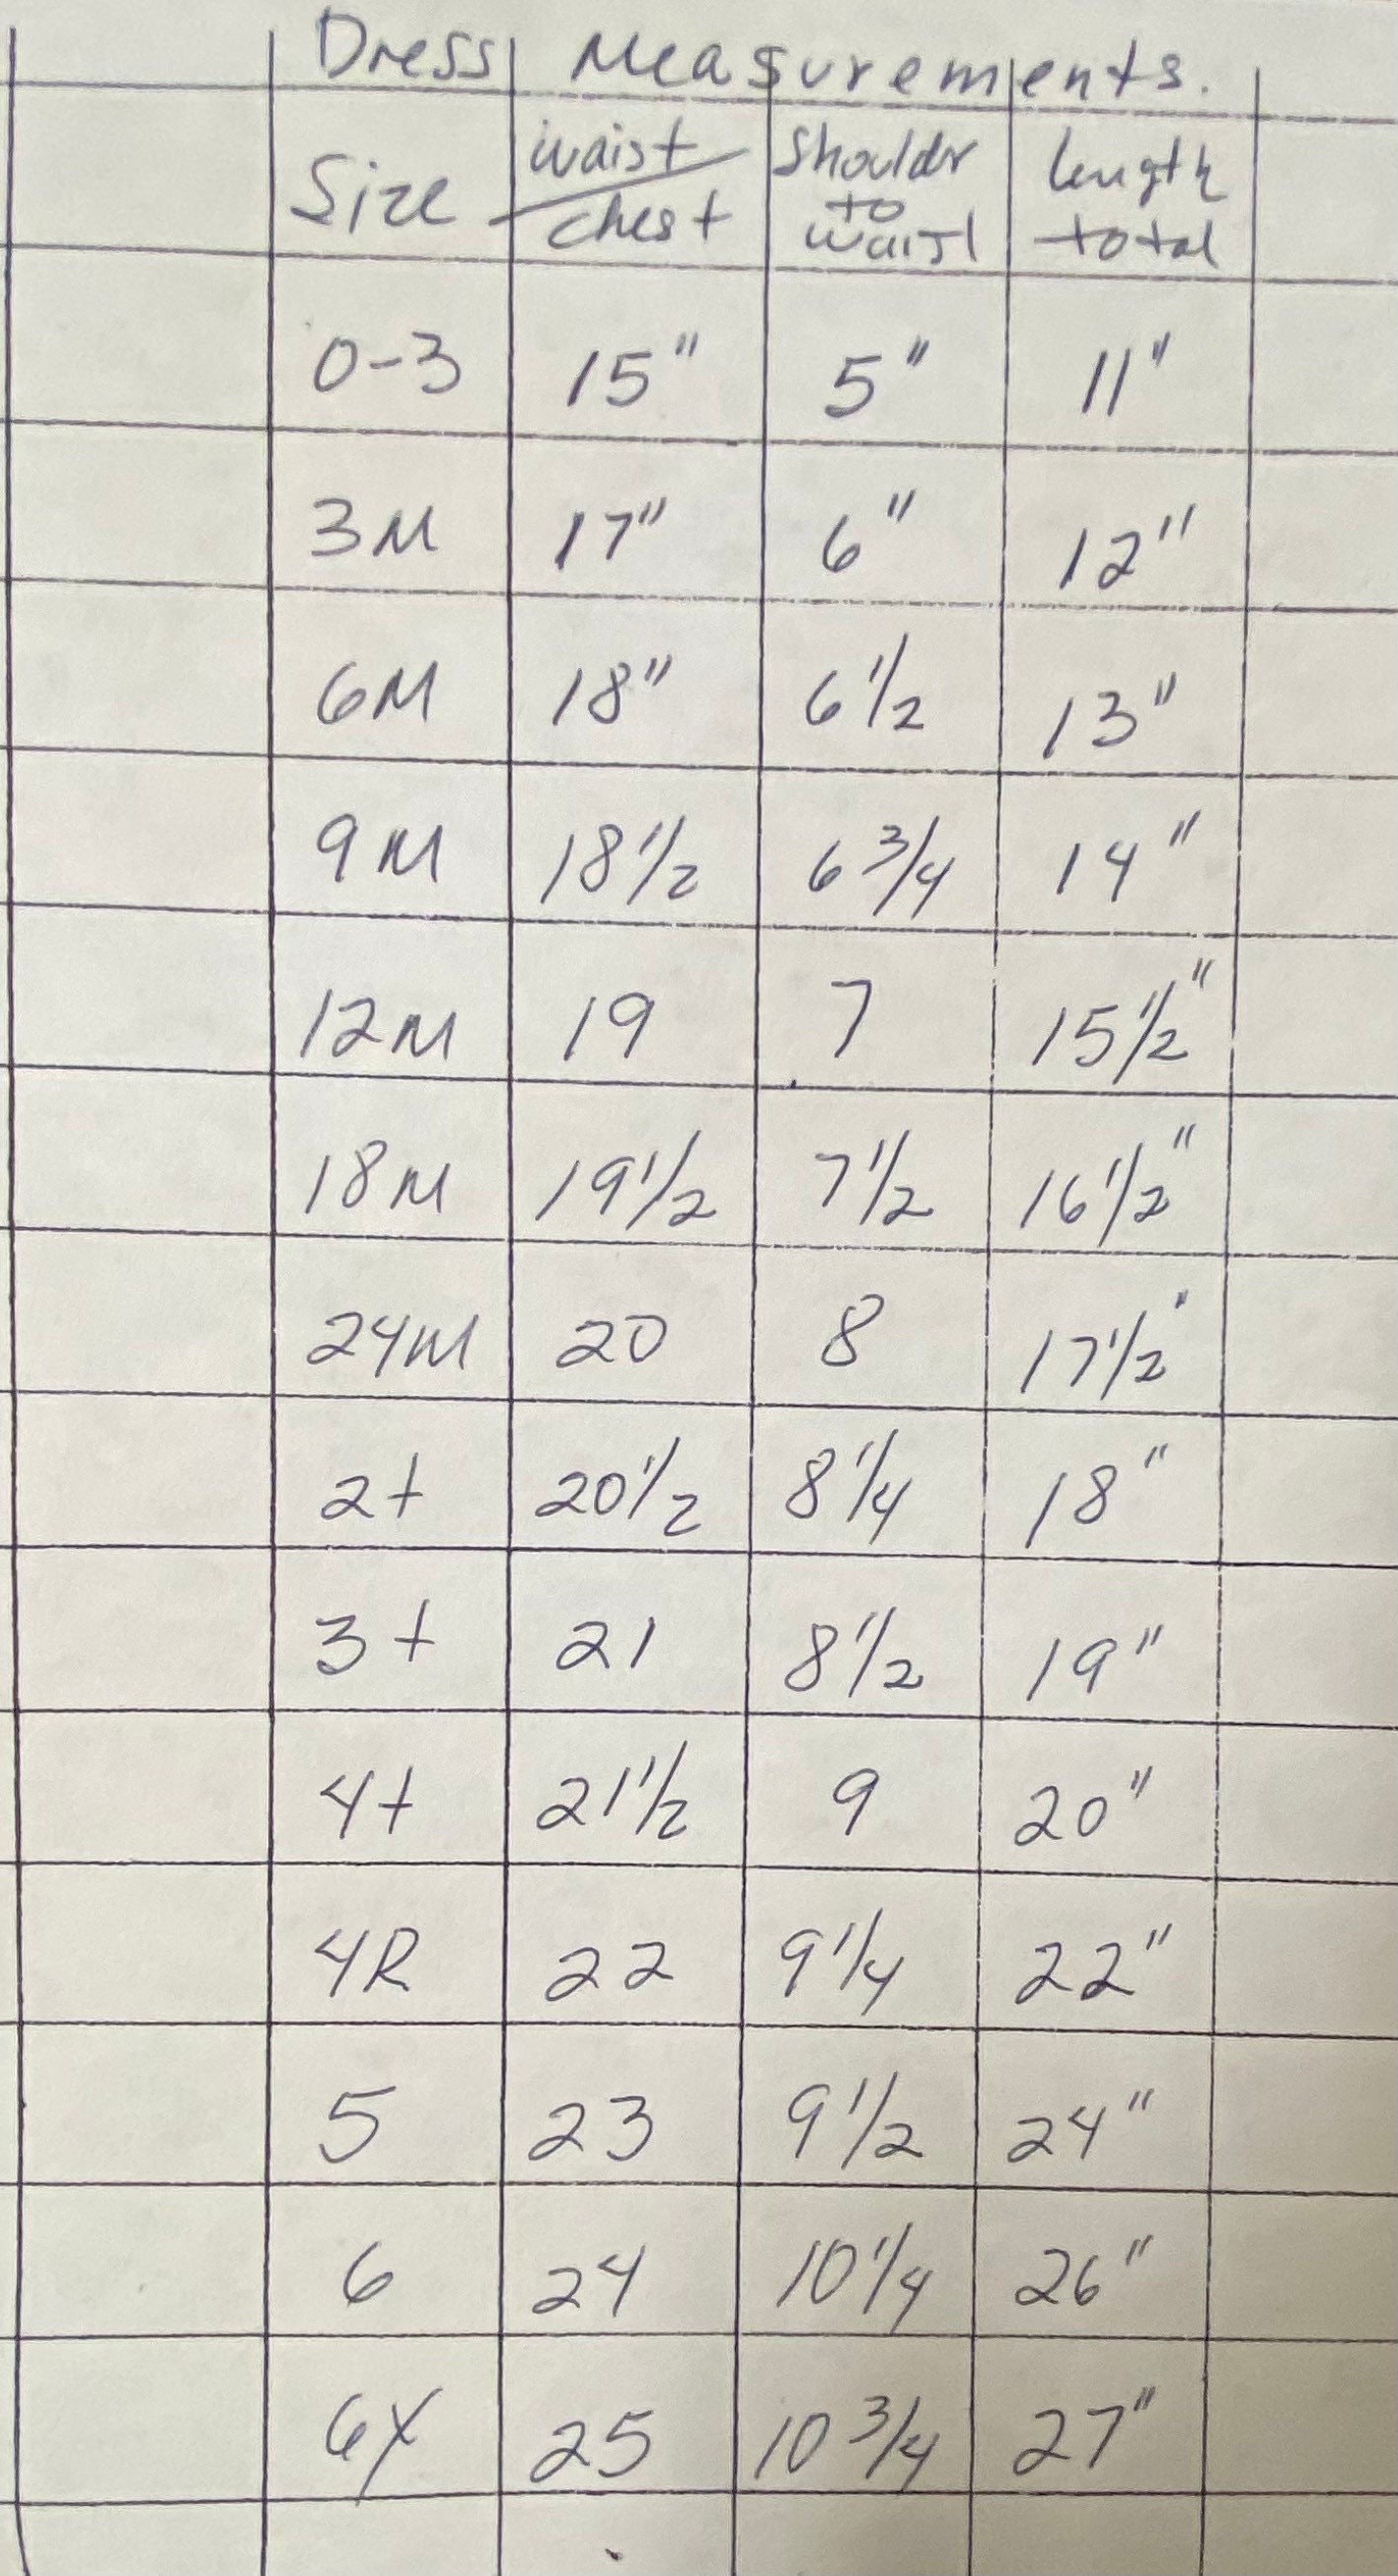 Dress Measurements.
Size waist/chest Shoulder to waist length total
0-3 15" 5" 11"
3M 17" 6" 12"
6M 18" 6 1/2 13"
9M 18 1/2 6 3/4 14"
12M 19 7 15 1/2"
18M 19 1/2 7 1/2 16 1/2"
24M 20 8 17 1/2"
2t 20 1/2 8 1/4 18"
3t 21 8 1/2 19"
4t 21 1/2 9 20"
4R 22 9 1/4 22"
5 23 9 1/2 24"
6 24 10 1/4 26"
6X 25 10 3/4 27"